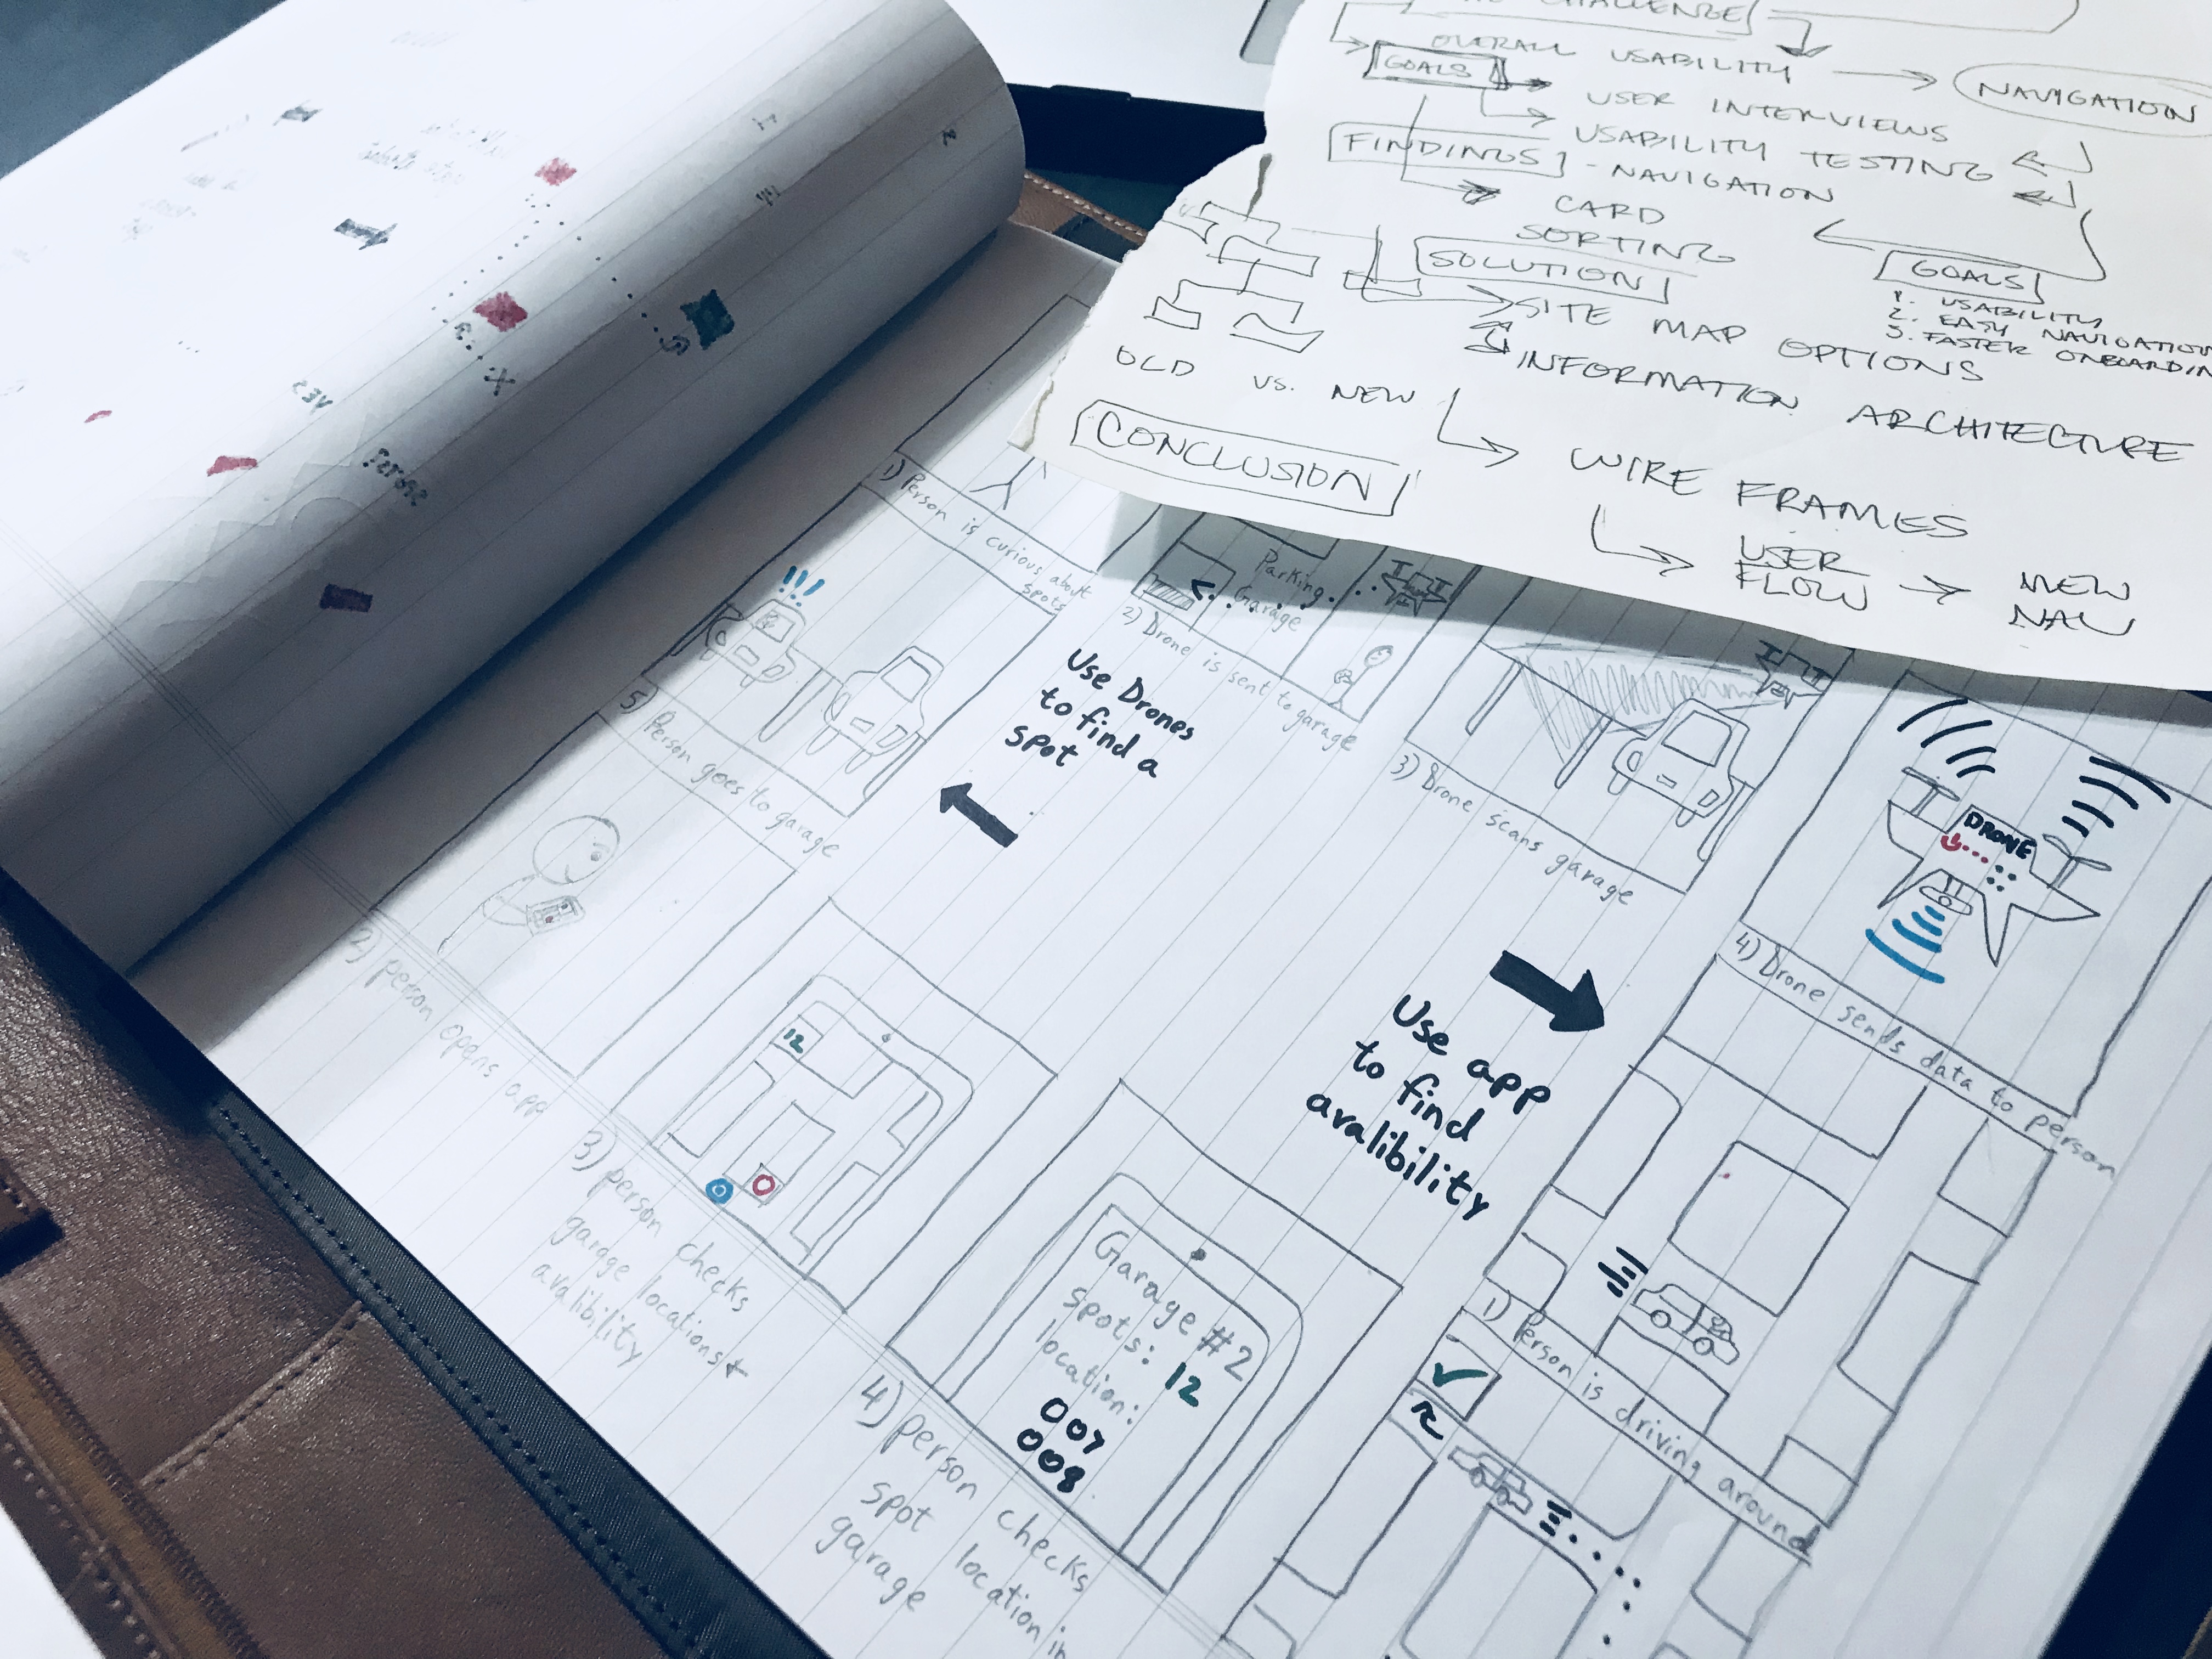 CHALLENGE
OVERALL USABILITY
NAVIGATION
GOALS
USER INTERVIEWS
USABILITY TESTING
FINDINGS - NAVIGATION
CARD
SORTING
SOLUTION
GOALS
1. USABILITY
2. EASY NAVIGATION
3. FASTER
SITE MAP OPTIONS
INFORMATION ARCHITECTURE
OLD vs. NEW
CONCLUSION
WIRE FRAMES
USER
FLOW
NEW
NAV
1) Person is curious about
spots
Parking
Garage
2) Drone is sent to garage
3) Drone scans garage
DRONE
4) Drone sends data to person
!!!
5) Person goes to garage
Use Drones
to find a
spot
Use app
to find
avalibility
1) Person is driving around
2) person opens app
12
3) person checks
garage locations +
avalibility
Garage #2
spots: 12
location:
007
008
4) person checks
spot location in
garage